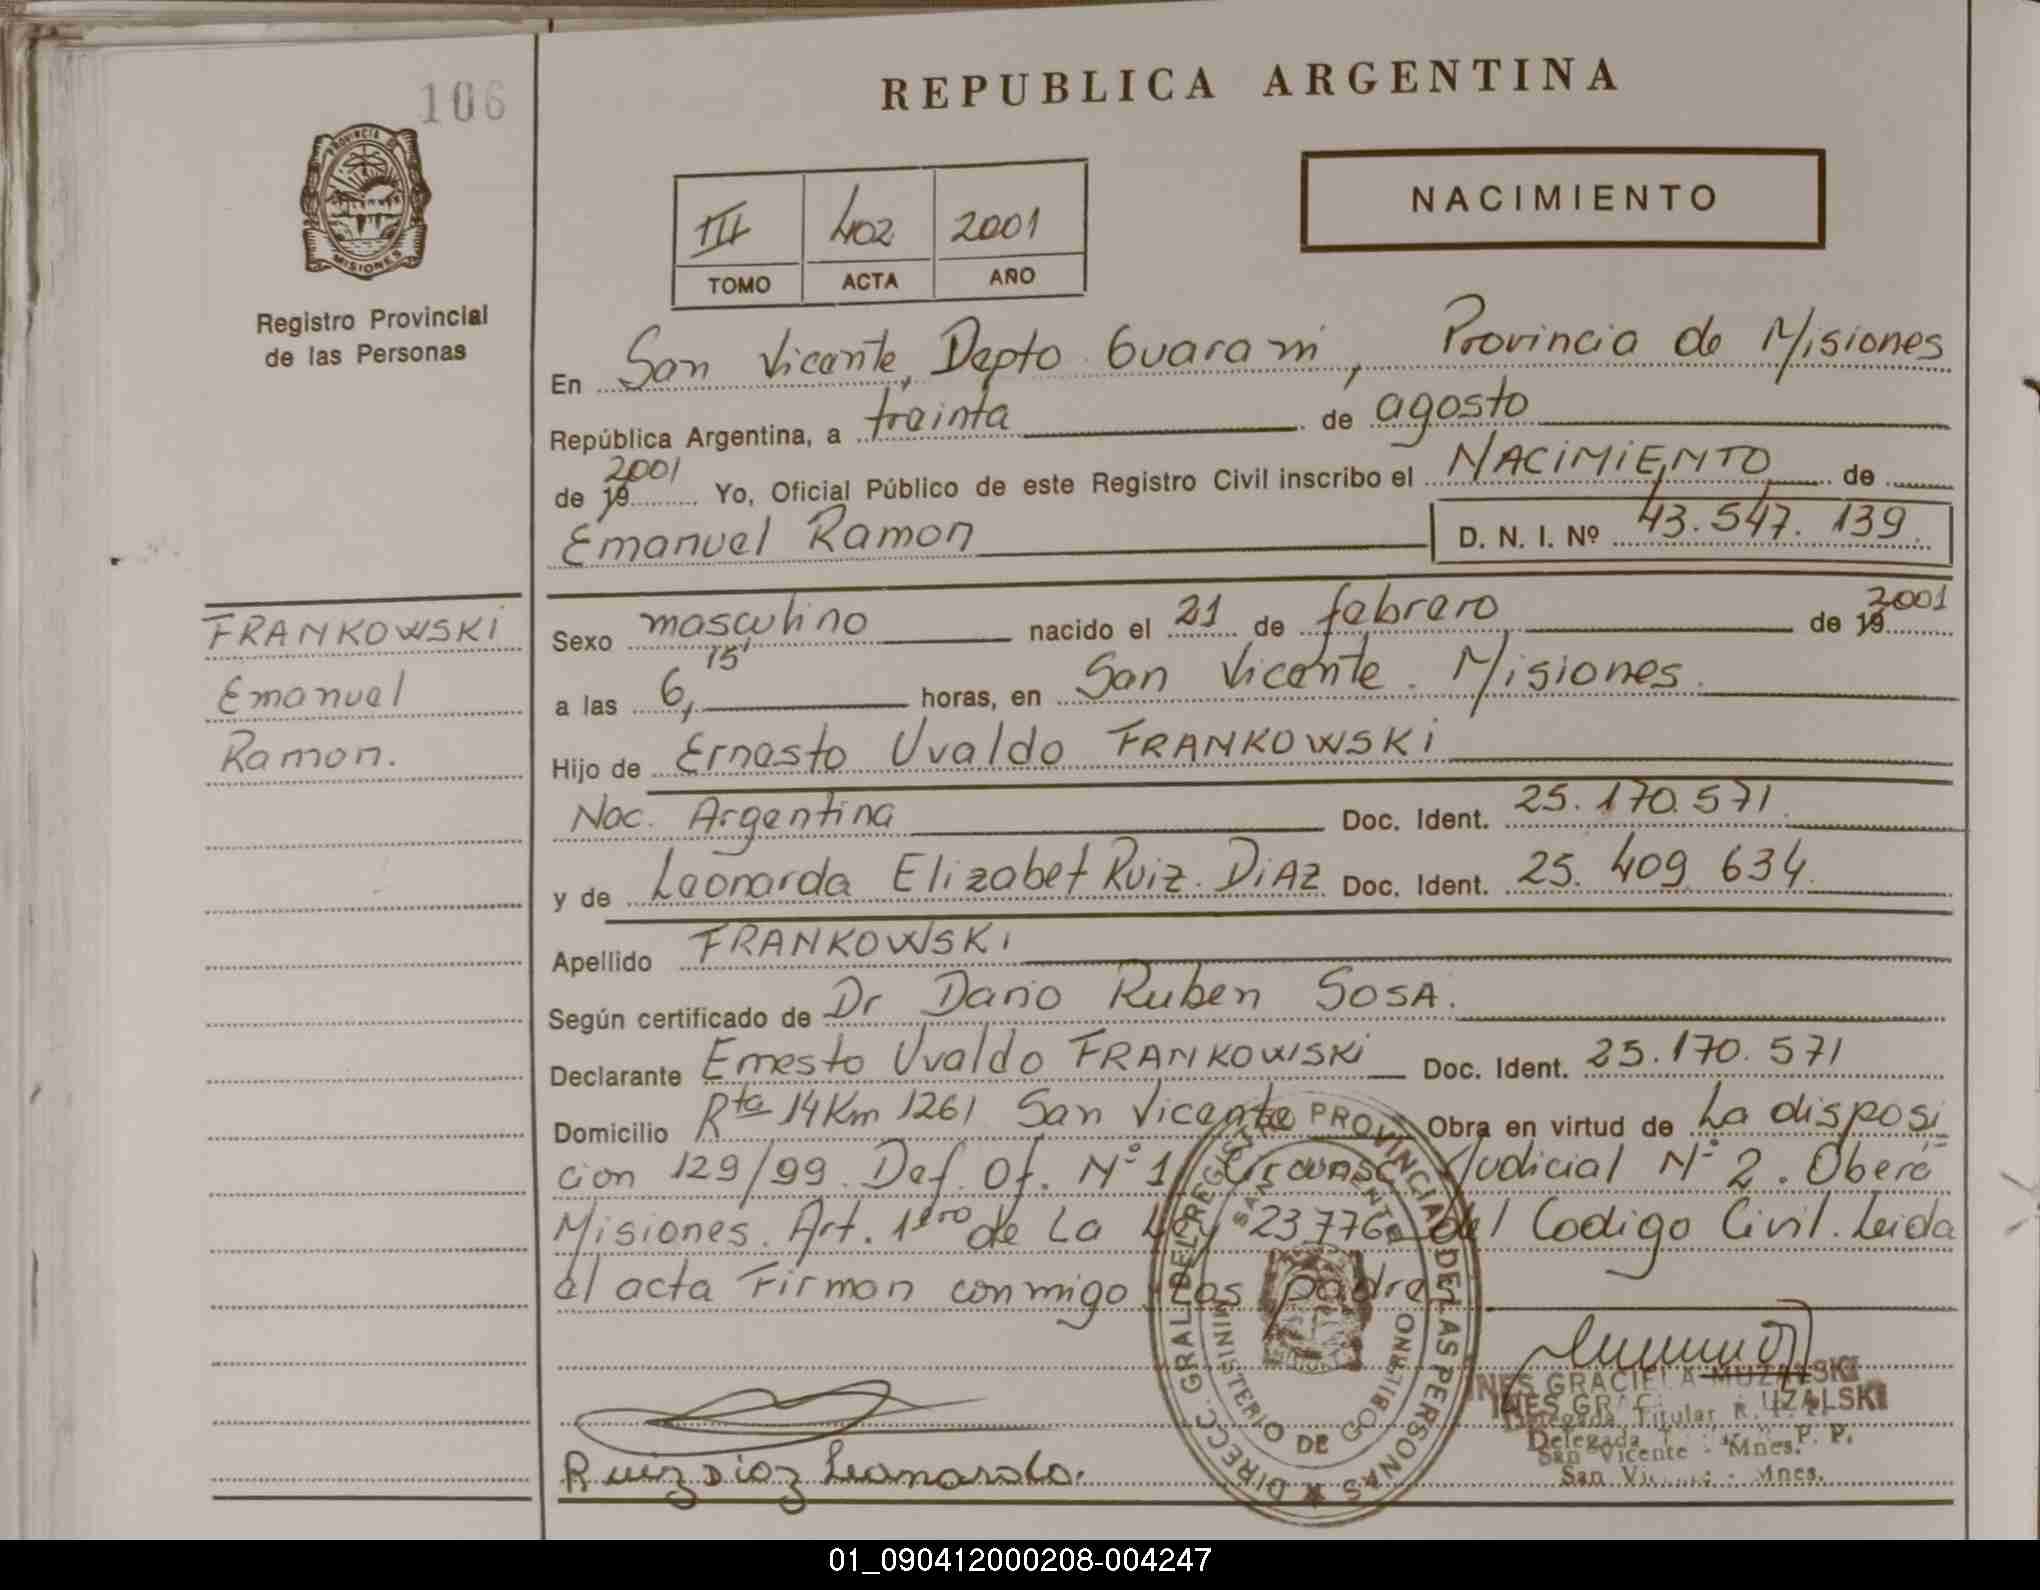 106
REPUBLICA ARGENTINA
PROVINCIA DE
MISIONES
Registro Provincial
de las Personas
III 402 2001
TOMO ACTA AÑO
NACIMIENTO
En San Vicente, Depto Guarani, Provincia de Misiones
República Argentina, a treinta de agosto
de 19 2001 Yo, Oficial Público de este Registro Civil inscribo el NACIMIENTO de
Emanuel Ramon D. N. I. Nº 43.547.139.
FRANKOWSKI
Emanuel
Ramon.
Sexo masculino nacido el 21 de febrero de 19 2001
a las 6,15' horas, en San Vicente. Misiones.
Hijo de Ernesto Uvaldo FRANKOWSKI
Nac. Argentina Doc. Ident. 25.170.571
y de Leonarda Elizabet Ruiz. DIAZ Doc. Ident. 25.409.634
Apellido FRANKOWSKI
Según certificado de Dr Dario Ruben SOSA.
Declarante Ernesto Uvaldo FRANKOWSKI Doc. Ident. 25.170.571
Domicilio Rta 14 Km 1261 San Vicente Obra en virtud de La disposi
cion 129/99. Def. Of. Nº 1 Circunsc Judicial Nº 2. Oberá
Misiones. Art. 1ero de La Ley 23776 del Codigo Civil. Leida
el acta Firman conmigo Los padres
DIRECC. GRAL. DEL REGISTRO PROVINCIAL DE LAS PERSONAS
SAN VICENTE
MINISTERIO DE GOBIERNO
Ruiz Diaz Leonarda.
INES GRACIELA MUZALSKI
INES GR UZALSKI
Delegada Titular R. P. P.
Delegada P. P.
San Vicente - Mnes.
San Vi Mnes.
01_090412000208-004247